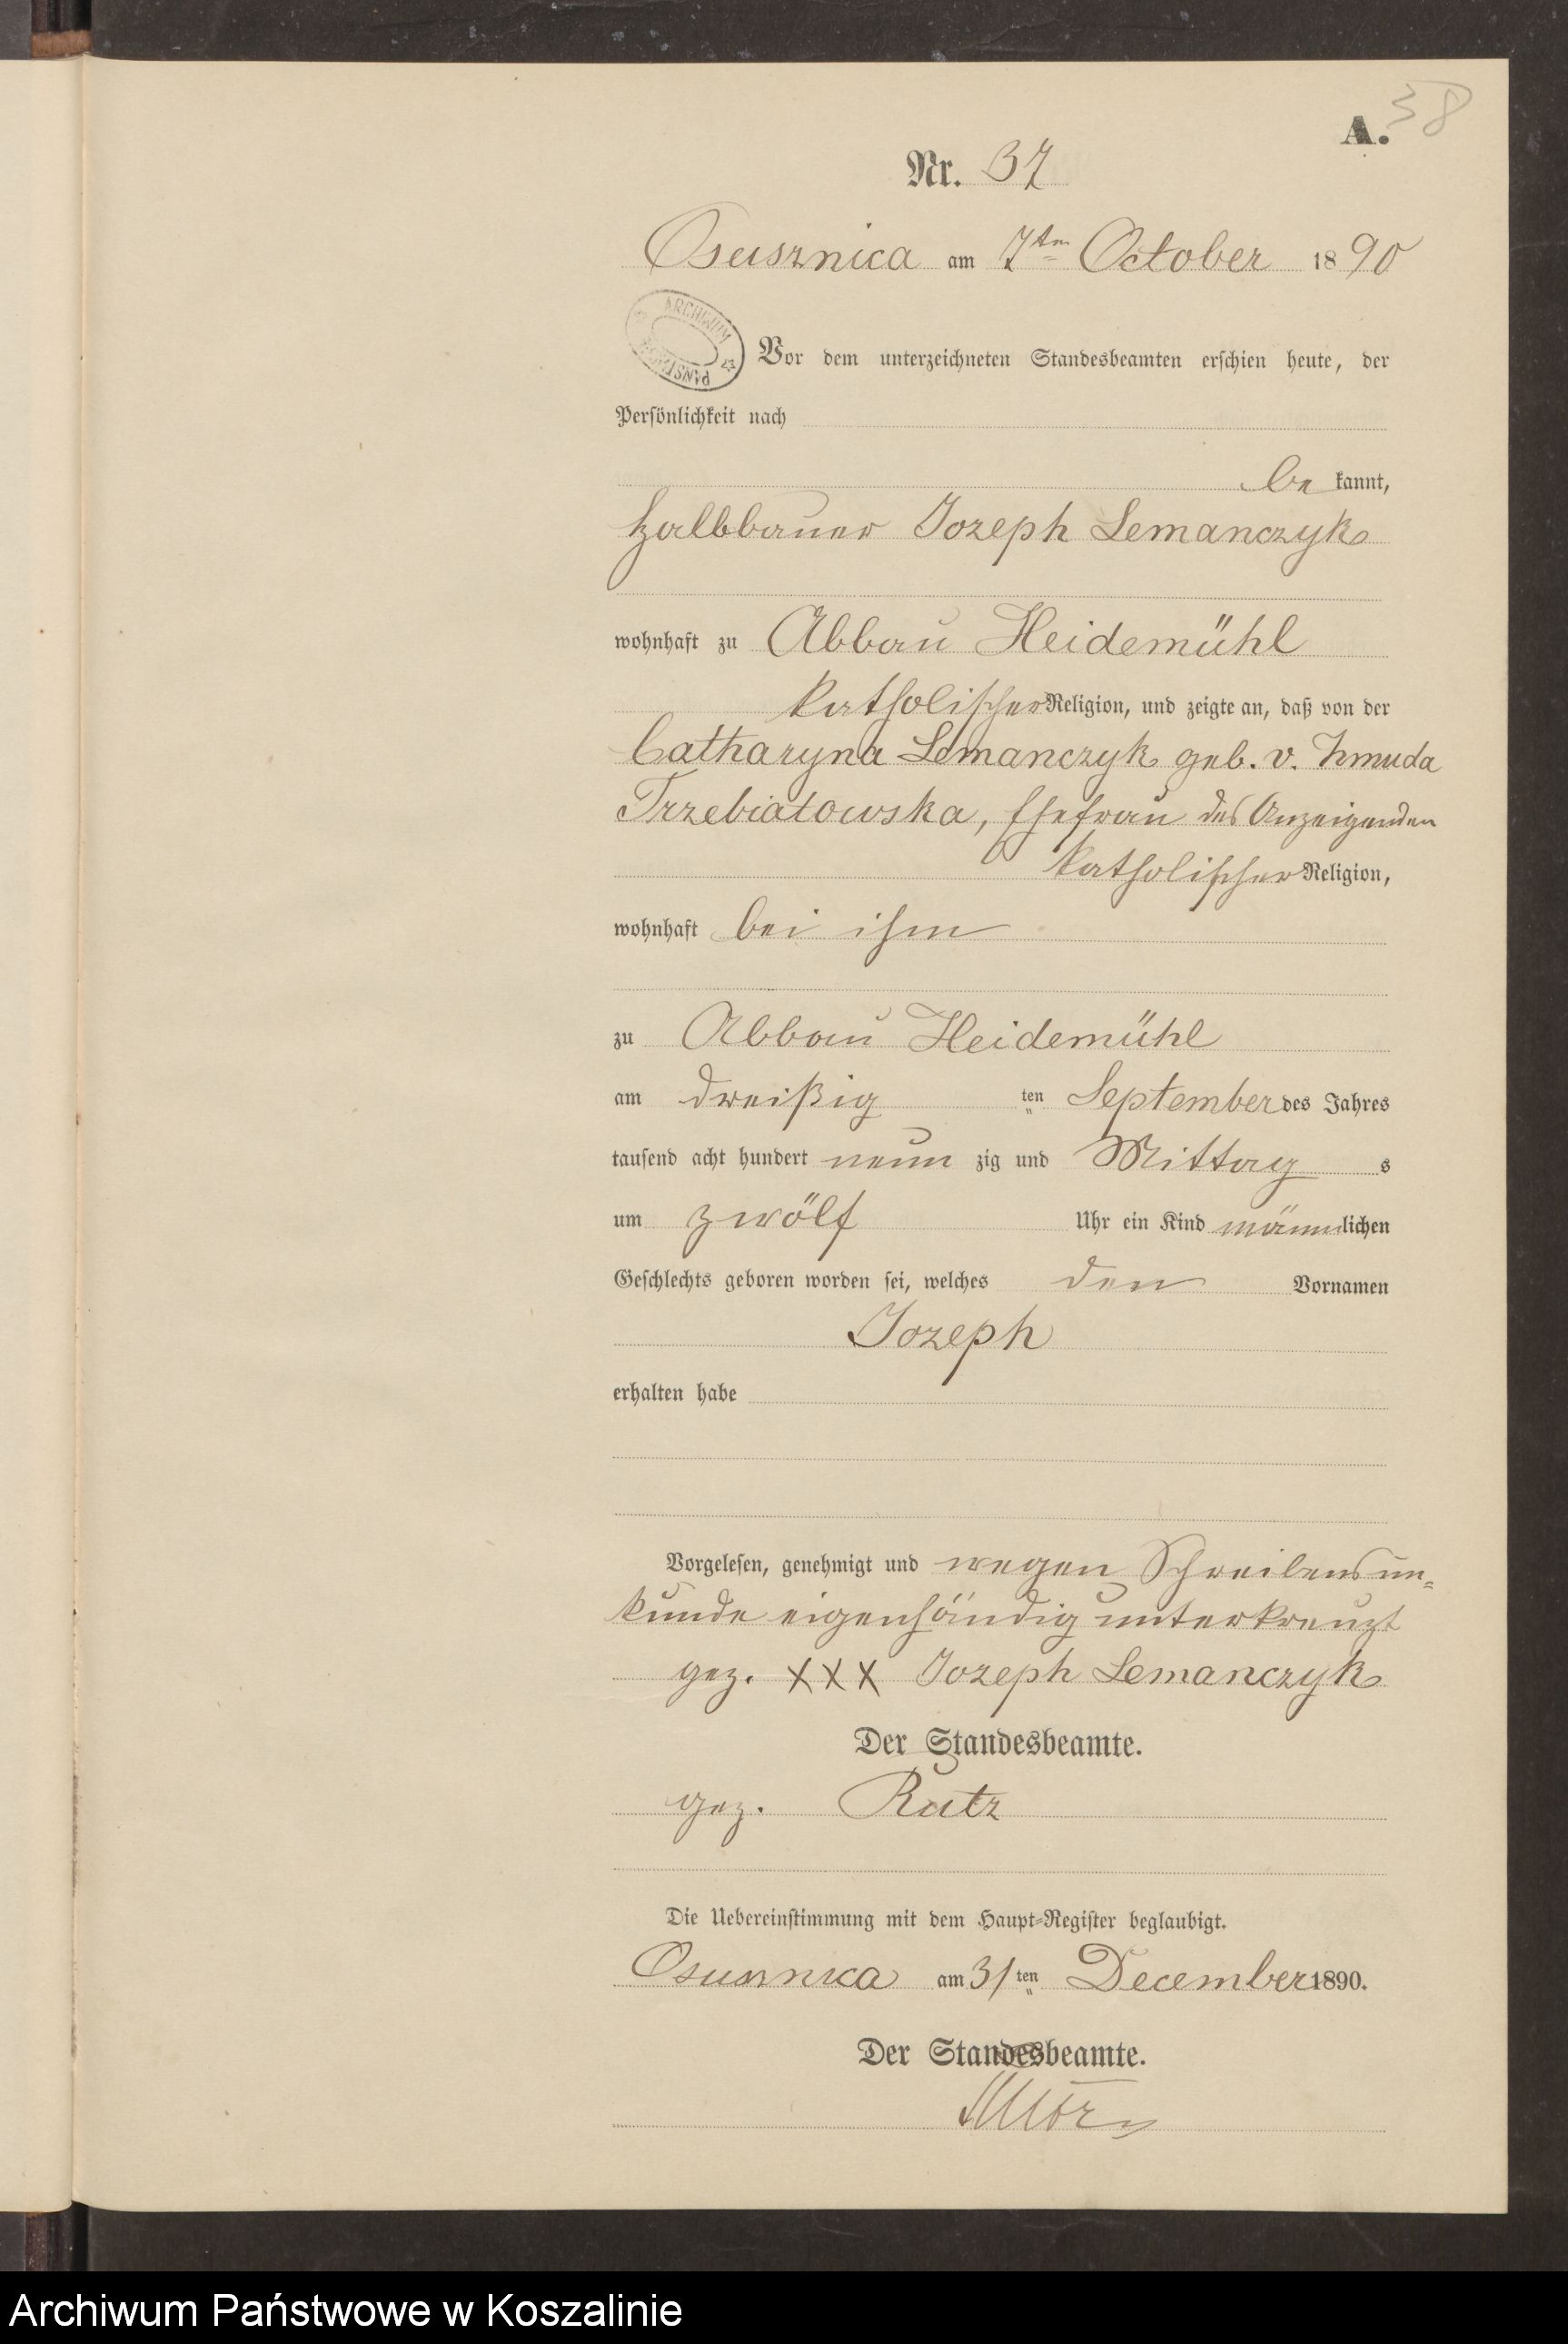 A. 38
Nr. 37
Osusznica am 7ten October 1890
ARCHIWUM PAŃSTWOWE
Vor dem unterzeichneten Standesbeamten erschien heute, der
Persönlichkeit nach
be kannt,
Halbbauer Jozeph Lemanczyk
wohnhaft zu Abbau Heidemühl
katholischer Religion, und zeigte an, daß von der
Catharyna Lemanczyk geb. v. Zmuda
Trzebiatowska, Ehefrau des Anzeigenden
katholischer Religion,
wohnhaft bei ihm
zu Abbau Heidemühl
am dreißig ten September des Jahres
tausend acht hundert neun zig und Mittag s
um zwölf Uhr ein Kind männlichen
Geschlechts geboren worden sei, welches den Vornamen
Jozeph
erhalten habe
Vorgelesen, genehmigt und wegen Schreibensun-
kunde eigenhändig unterkreuzt
gez. XXX Jozeph Lemanczyk
Der Standesbeamte.
gez. Rutz
Die Uebereinstimmung mit dem Haupt-Register beglaubigt.
Osusznica am 31ten December 1890.
Der Standesbeamte.
Archiwum Państwowe w Koszalinie